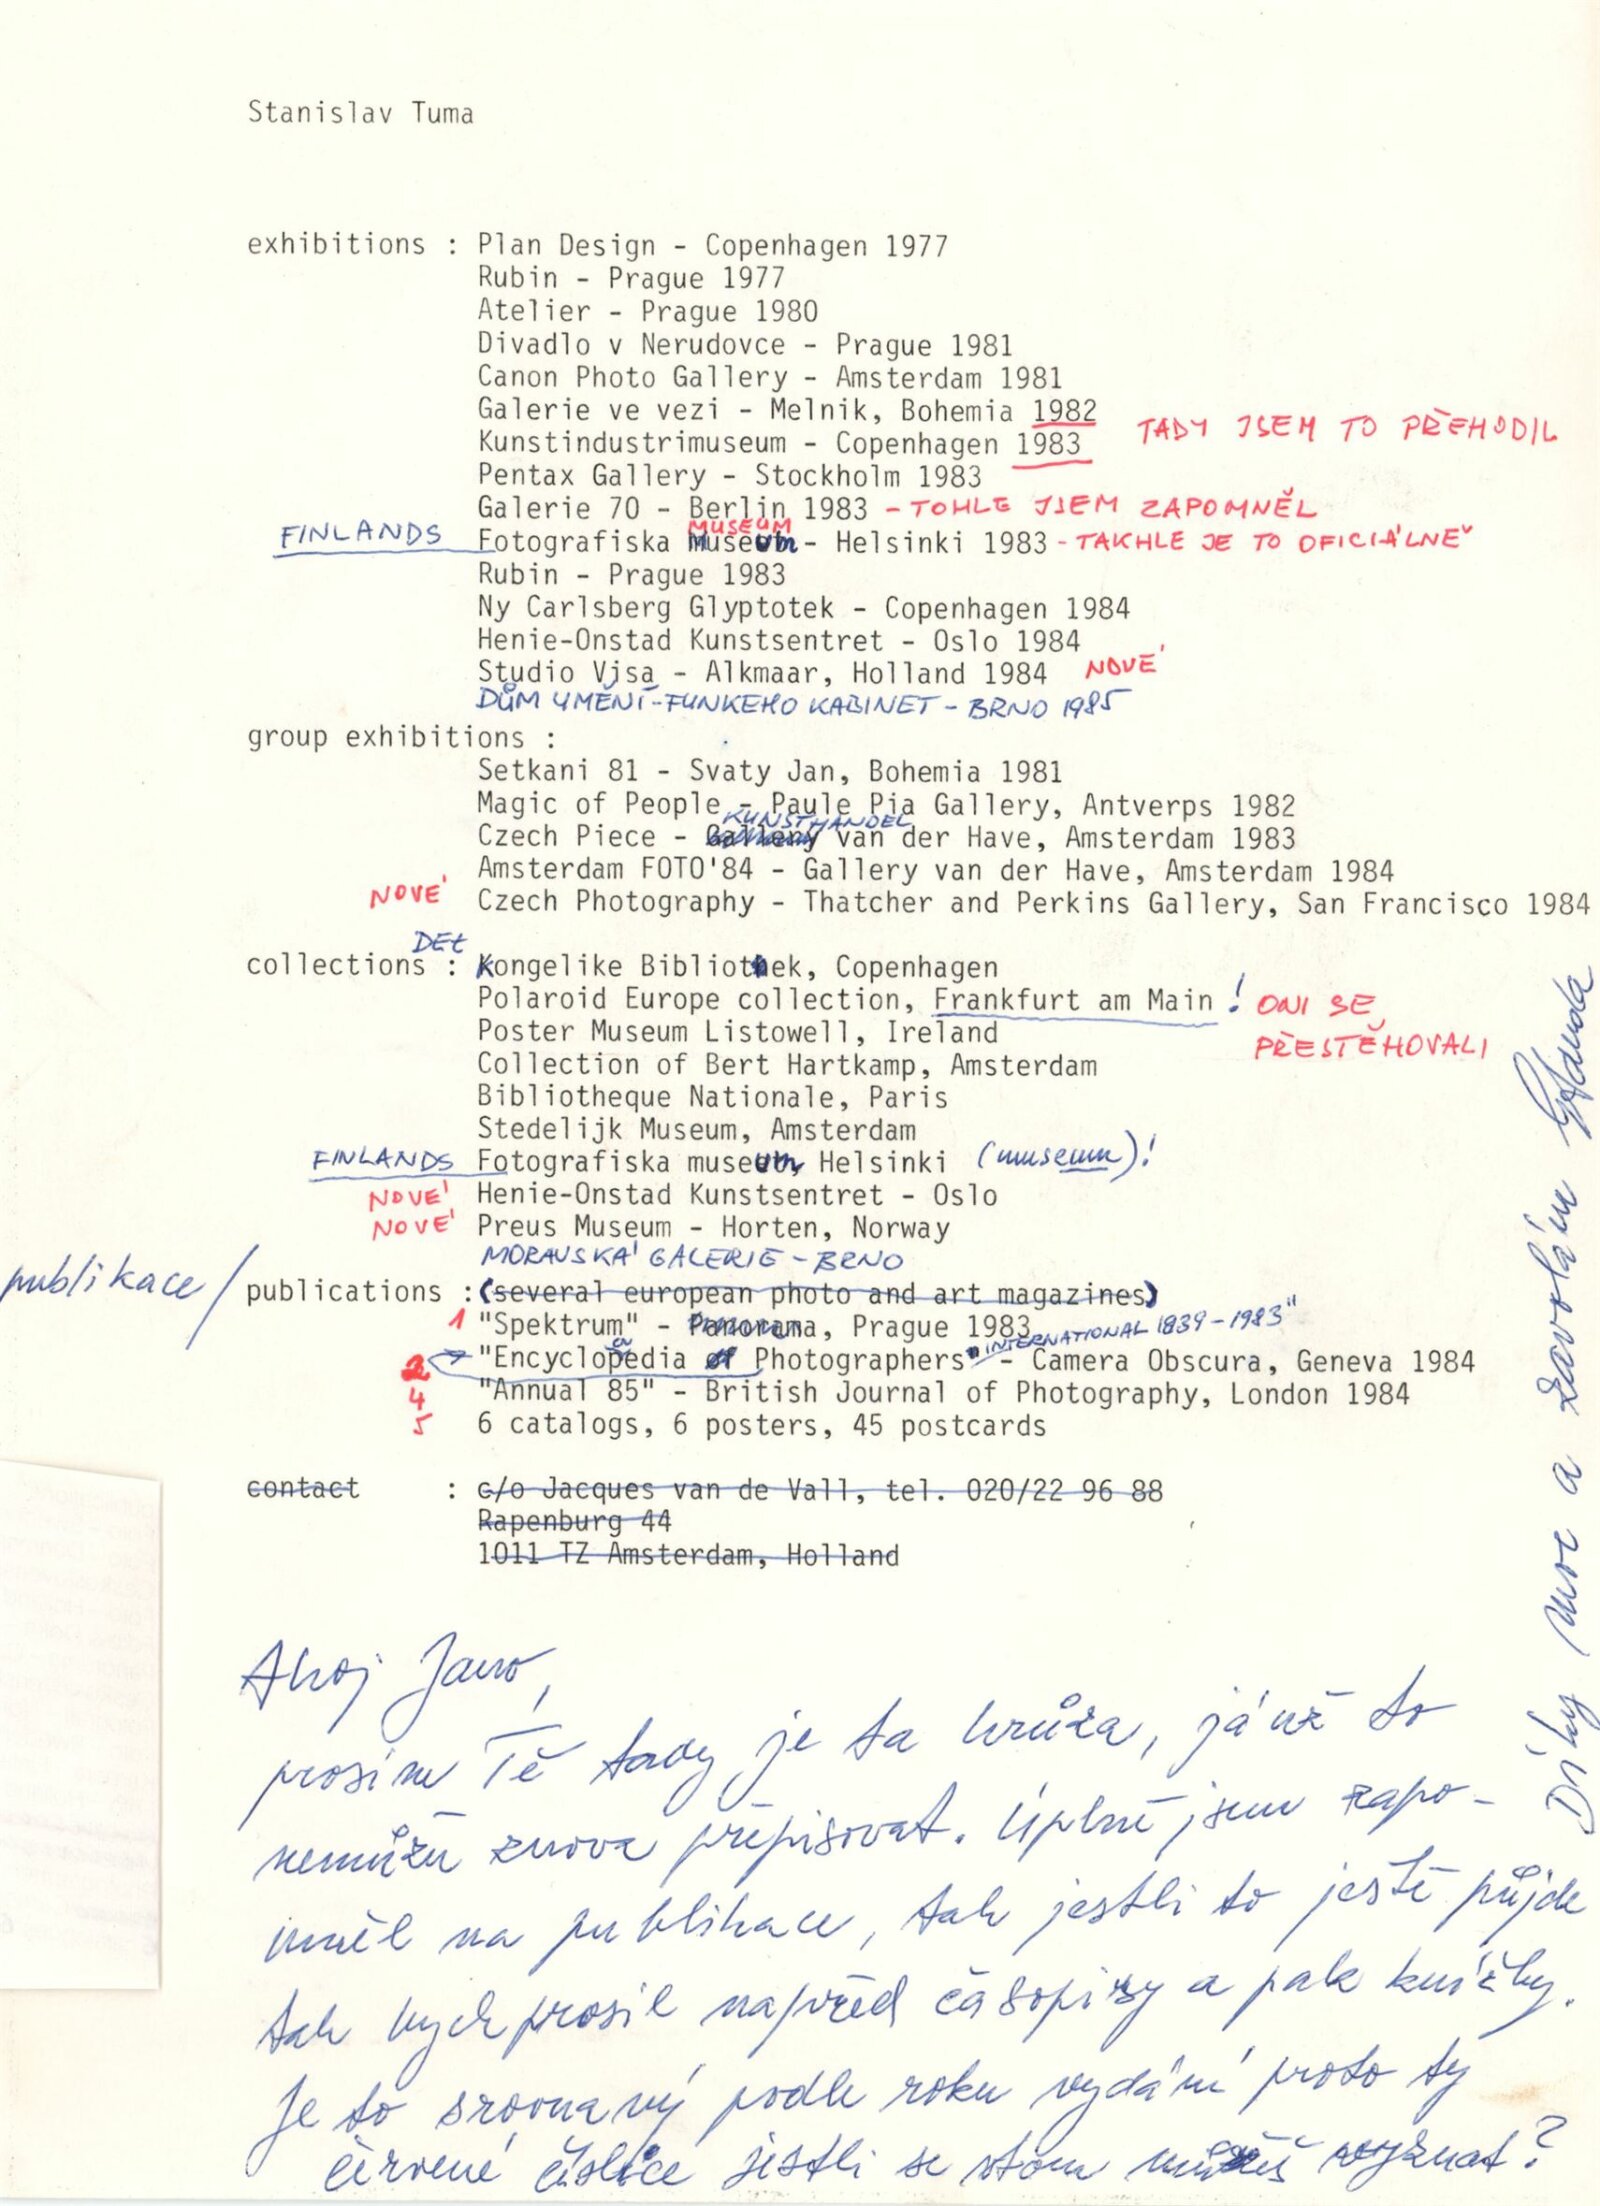 Stanislav Tuma
exhibitions : Plan Design - Copenhagen 1977
Rubin - Prague 1977
Atelier - Prague 1980
Divadlo v Nerudovce - Prague 1981
Canon Photo Gallery - Amsterdam 1981
Galerie ve vezi - Melnik, Bohemia 1982
TADY JSEM TO PŘEHODIL
Kunstindustrimuseum - Copenhagen 1983
Pentax Gallery - Stockholm 1983
Galerie 70 - Berlin 1983 - TOHLE JSEM ZAPOMNĚL
MUSEUM
FINLANDS Fotografiska museum - Helsinki 1983 - TAKHLE JE TO OFICIÁLNĚ
Rubin - Prague 1983
Ny Carlsberg Glyptotek - Copenhagen 1984
Henie-Onstad Kunstsentret - Oslo 1984
Studio Vjsa - Alkmaar, Holland 1984 NOVÉ
DŮM UMĚNÍ - FUNKEHO KABINET - BRNO 1985
group exhibitions :
Setkani 81 - Svaty Jan, Bohemia 1981
Magic of People - Paule Pia Gallery, Antverps 1982
KUNSTHANDEL
Czech Piece - Gallery van der Have, Amsterdam 1983
Amsterdam FOTO'84 - Gallery van der Have, Amsterdam 1984
NOVÉ Czech Photography - Thatcher and Perkins Gallery, San Francisco 1984
DET
collections : Kongelike Bibliothek, Copenhagen
Polaroid Europe collection, Frankfurt am Main ! ONI SE
PŘESTĚHOVALI
Poster Museum Listowell, Ireland
Collection of Bert Hartkamp, Amsterdam
Bibliotheque Nationale, Paris
Stedelijk Museum, Amsterdam
FINLANDS Fotografiska museum, Helsinki (museum)!
NOVÉ Henie-Onstad Kunstsentret - Oslo
NOVÉ Preus Museum - Horten, Norway
MORAVSKÁ GALERIE - BRNO
publikace / publications : (several european photo and art magazines)
1 "Spektrum" - Panorama, Prague 1983
INTERNATIONAL 1839 - 1983"
2 "Encyclopedia of Photographers" - Camera Obscura, Geneva 1984
4 "Annual 85" - British Journal of Photography, London 1984
5 6 catalogs, 6 posters, 45 postcards
contact : c/o Jacques van de Vall, tel. 020/22 96 88
Rapenburg 44
1011 TZ Amsterdam, Holland
Ahoj Jano,
prosím Tě tady je ta hrůza, já už to
nemůžu znova přepisovat. Úplně jsem zapo-
mněl na publikace, tak jestli to ještě půjde
tak bych prosil napřed časopisy a pak knížky.
Je to srovnaný podle roku vydání proto ty
červené číslice jestli se v tom můžeš vyznat?
Díky moc a zavolám Standa